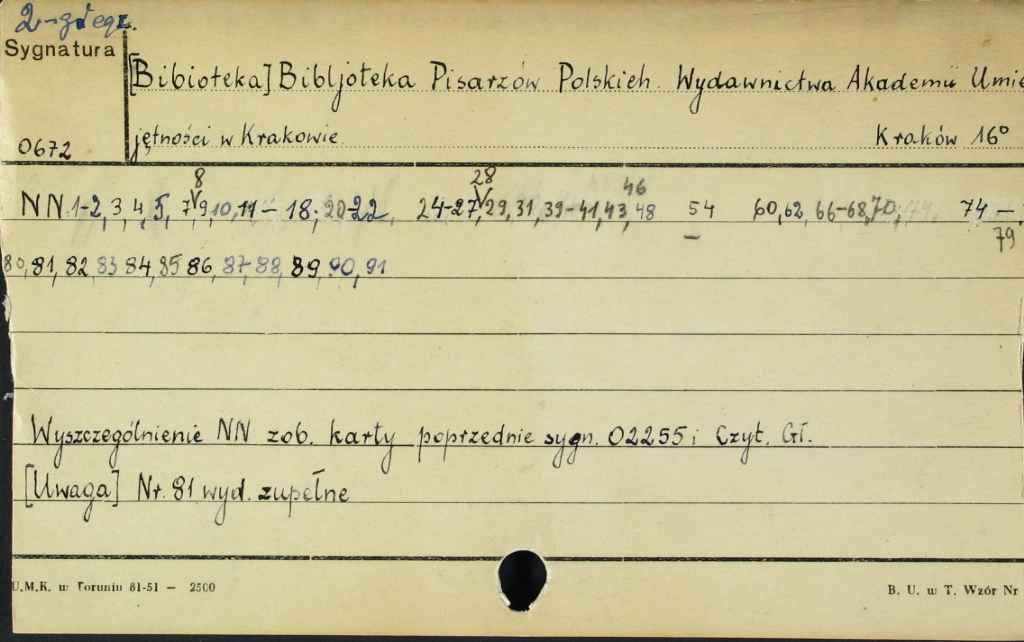 2-gi egz.
Sygnatura
[Bibioteka] Bibljoteka Pisarzów Polskich. Wydawnictwa Akademii Umie
jętności w Krakowie. Kraków 16°
0672
8 28 46
NN 1-2, 3, 4, 5, 7, 9, 10, 11 - 18, 20-22, 24-27, 29, 31, 39-41, 43, 48 54 60, 62, 66-68, 70, 74 -
79
80, 81, 82, 83 84, 85 86, 87-88, 89, 90, 91
Wyszczególnienie NN zob. karty poprzednie sygn. 02255 i Czyt. Gł.
[Uwaga] Nr. 81 wyd. zupełne
U.M.K. w Toruniu 81-51 — 2500
B. U. w T. Wzór Nr